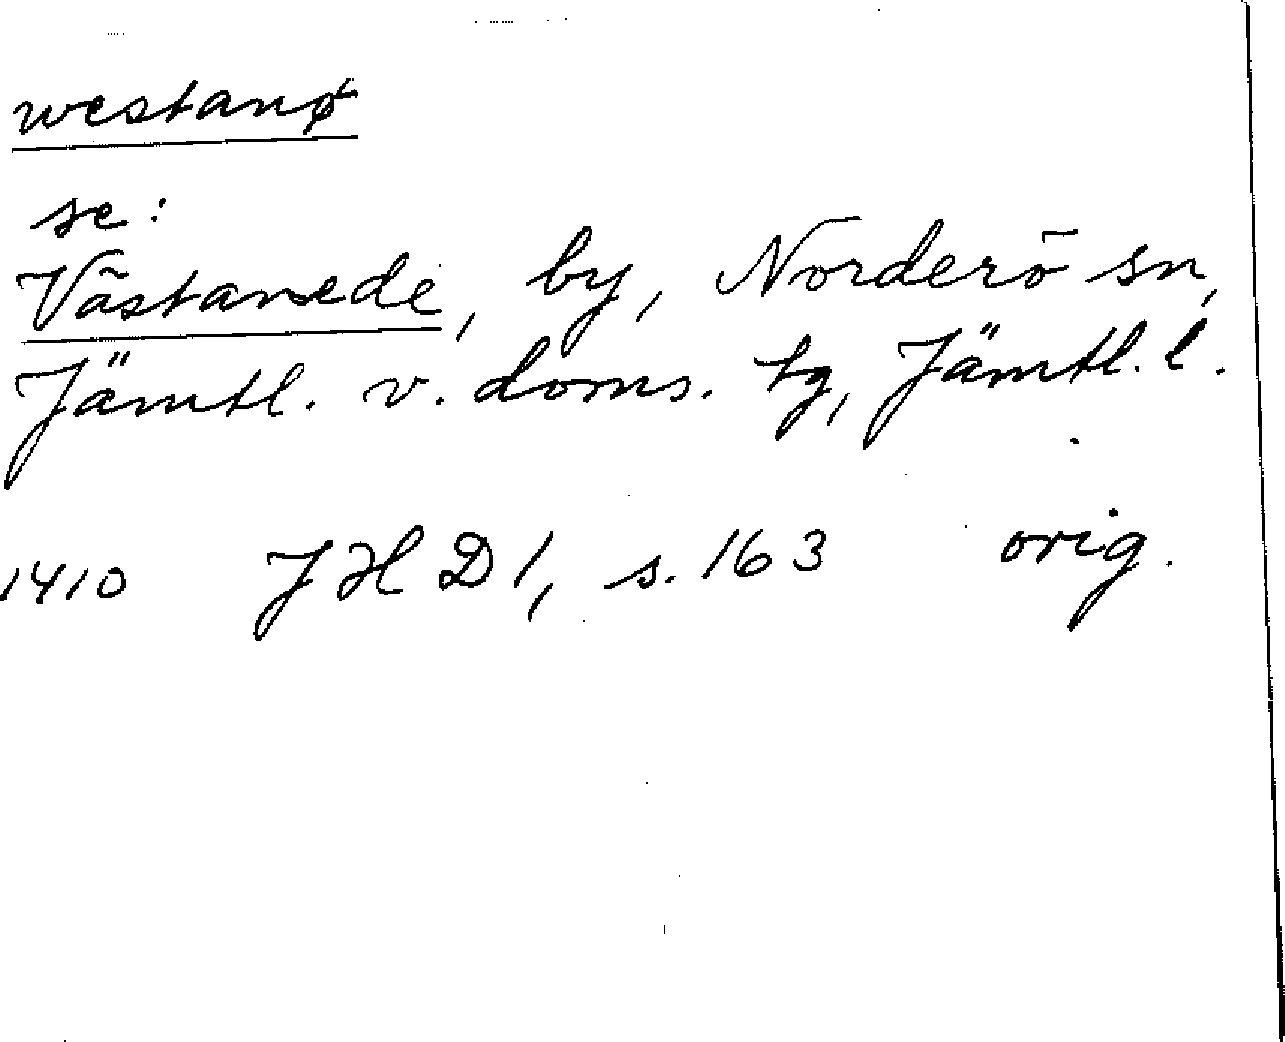 westanø
se:
Västanede, by, Norderö sn,
Jämtl. v. doms. tg, Jämtl. l.
1410 JHD 1, s. 163 orig.